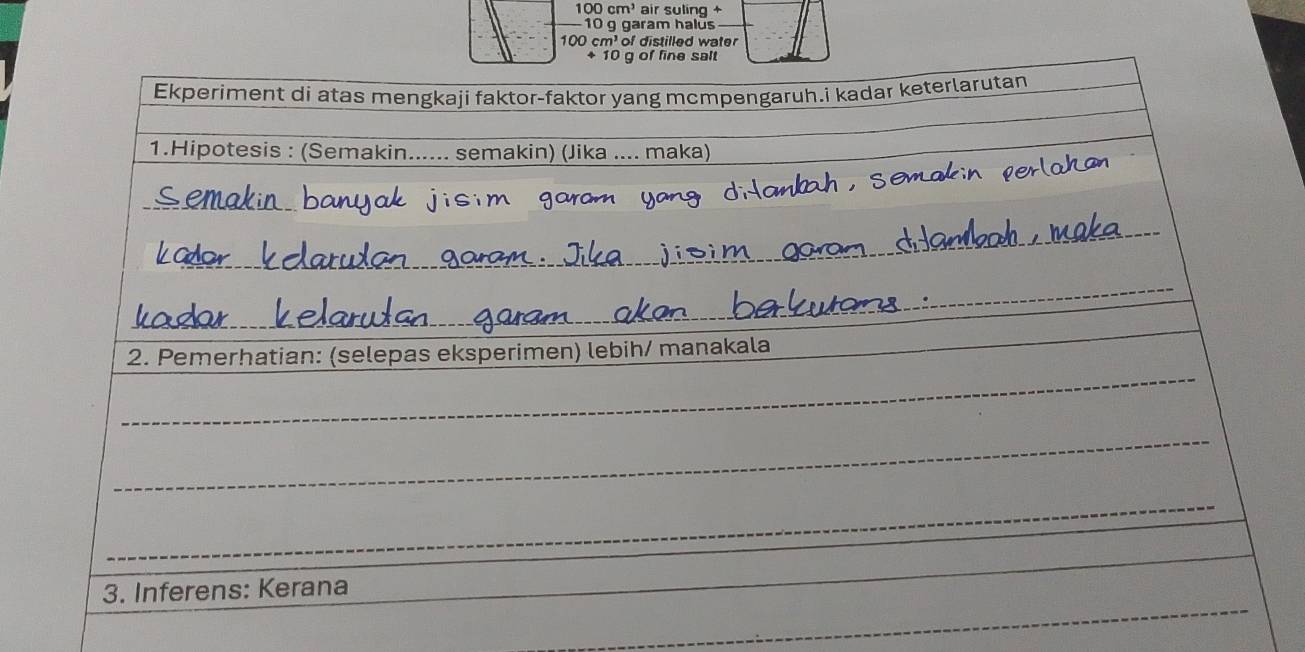 100 cm³ air suling +
10 g garam halus
100 cm³ of distilled water
+ 10 g of fine salt
Ekperiment di atas mengkaji faktor-faktor yang mcmpengaruh.i kadar keterlarutan
1.Hipotesis : (Semakin...... semakin) (Jika .... maka)
Semakin banyak jisim garam yang ditambah, semakin perlahan
kadar kelarutan garam. Jika jisim garam ditambah, maka
kadar kelarutan garam akan berkurang.
2. Pemerhatian: (selepas eksperimen) lebih/ manakala
3. Inferens: Kerana